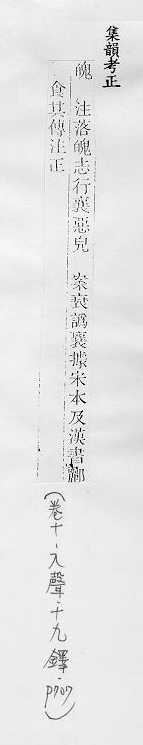 集韻考正
魄 注落魄志行衰惡皃 案衰譌襄據宋本及漢書酈
食其傳注正
(卷十·入聲·十九鐸·p707)